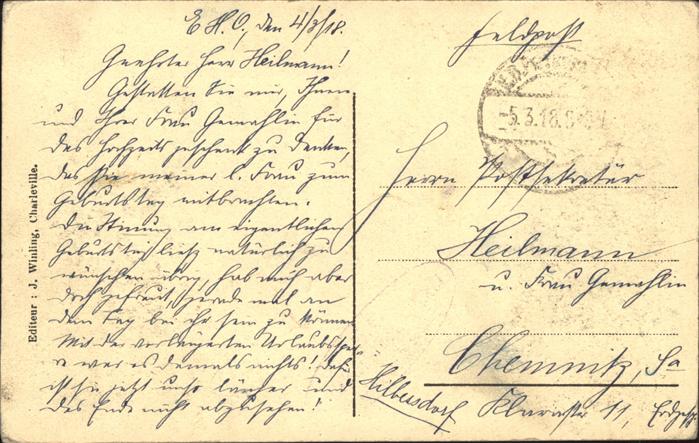 E H. O, den 4/3/18.
Geehrter Herr Heilmann!
Gestatten Sie mir, Ihnen
und Ihrer Frau Gemahlin für
das Hochzeitsgeschenk zu danken,
das Sie meiner l. Frau zum
Geburtstag mitbrachten.
Die Stimung am eigentlichen
Geburtstag ließ natürlich zu
wünschen übrig, hab mich aber
doch gefreut, gerade mal an
dem Tag bei ihr sein zu können
Mit der verlängerten Urlaubssper=
re war es damals nichts! Dafür
ist sie jetzt um so länger und
das Ende nicht abzusehen!
Editeur : J. Winling, Charleville.
Feldpost
-5.3.18.
Herrn Postsekretär
Heilmann
u. Frau Gemahlin
Chemnitz, Sa
Hilbersdorf
Klarastr 11, Erdgesch